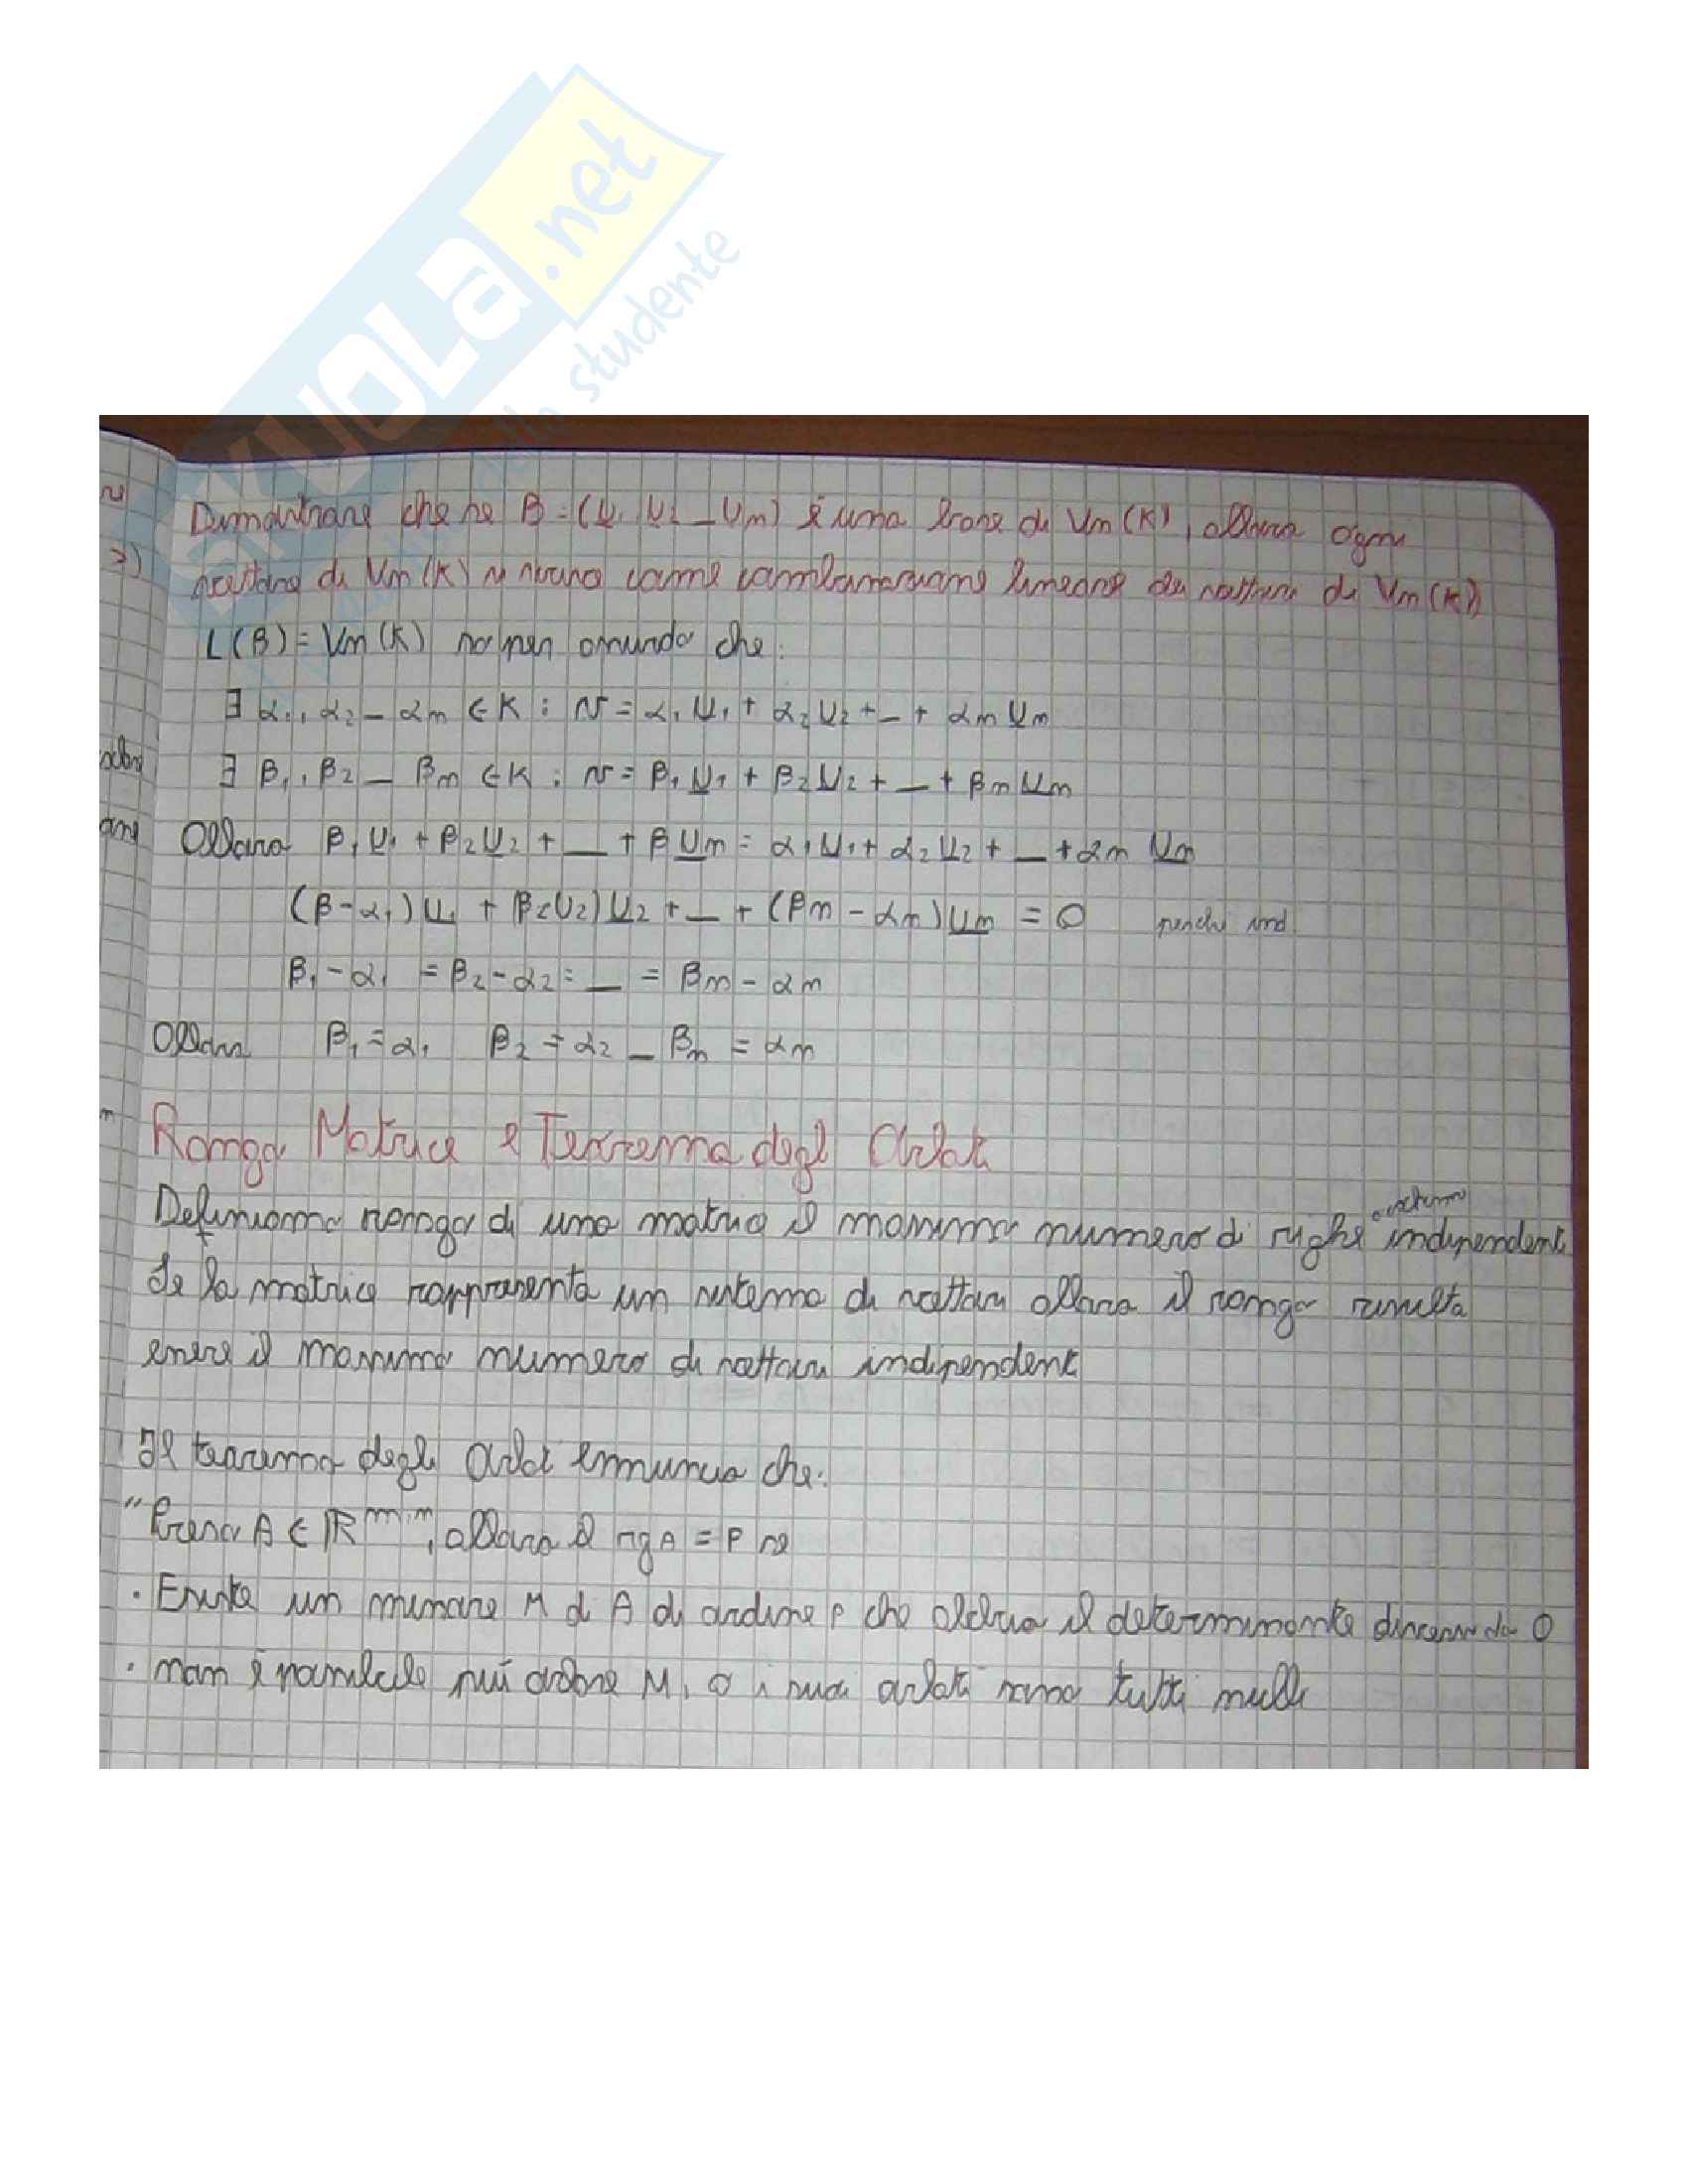 SKUOLA.net
studente
Dimostrare che se B = (U₁ U₂ _ Un) è una base di Vn(K), allora ogni
vettore di Vn(K) si scrive come combinazione lineare dei vettori di Vn(K)
L(B) = Vn(K) so per quando che:
∃ α₁, α₂ _ αn ∈ K : v = α₁U₁ + α₂U₂ + _ + αn Un
∃ β₁, β₂ _ βn ∈ K : v = β₁U₁ + β₂U₂ + _ + βn Un
Allora β₁U₁ + β₂U₂ + _ + βUn = α₁U₁ + α₂U₂ + _ + αn Un
(β-α₁)U₁ + β₂U₂)U₂ + _ + (βn - αn)Un = 0 perché ind
β₁ - α₁ = β₂ - α₂ = _ = βn - αn
Allora β₁ = α₁ β₂ = α₂ _ βn = αn
Rango Matrice e Teorema degl Orlati
Definiamo rango di una matrice il massimo numero di righe indipendenti
Se la matrice rappresenta un sistema di vettori allora il rango risulta
essere il massimo numero di vettori indipendenti
Il teorema degli Orlati ennuncia che:
"Presa A ∈ ℝ^m,n, allora il rgA = P se
• Esiste un minore M di A di ordine p che abbia il determinante diverso da 0
• non è possibile più orlare M, o i suoi orlati sono tutti nulli